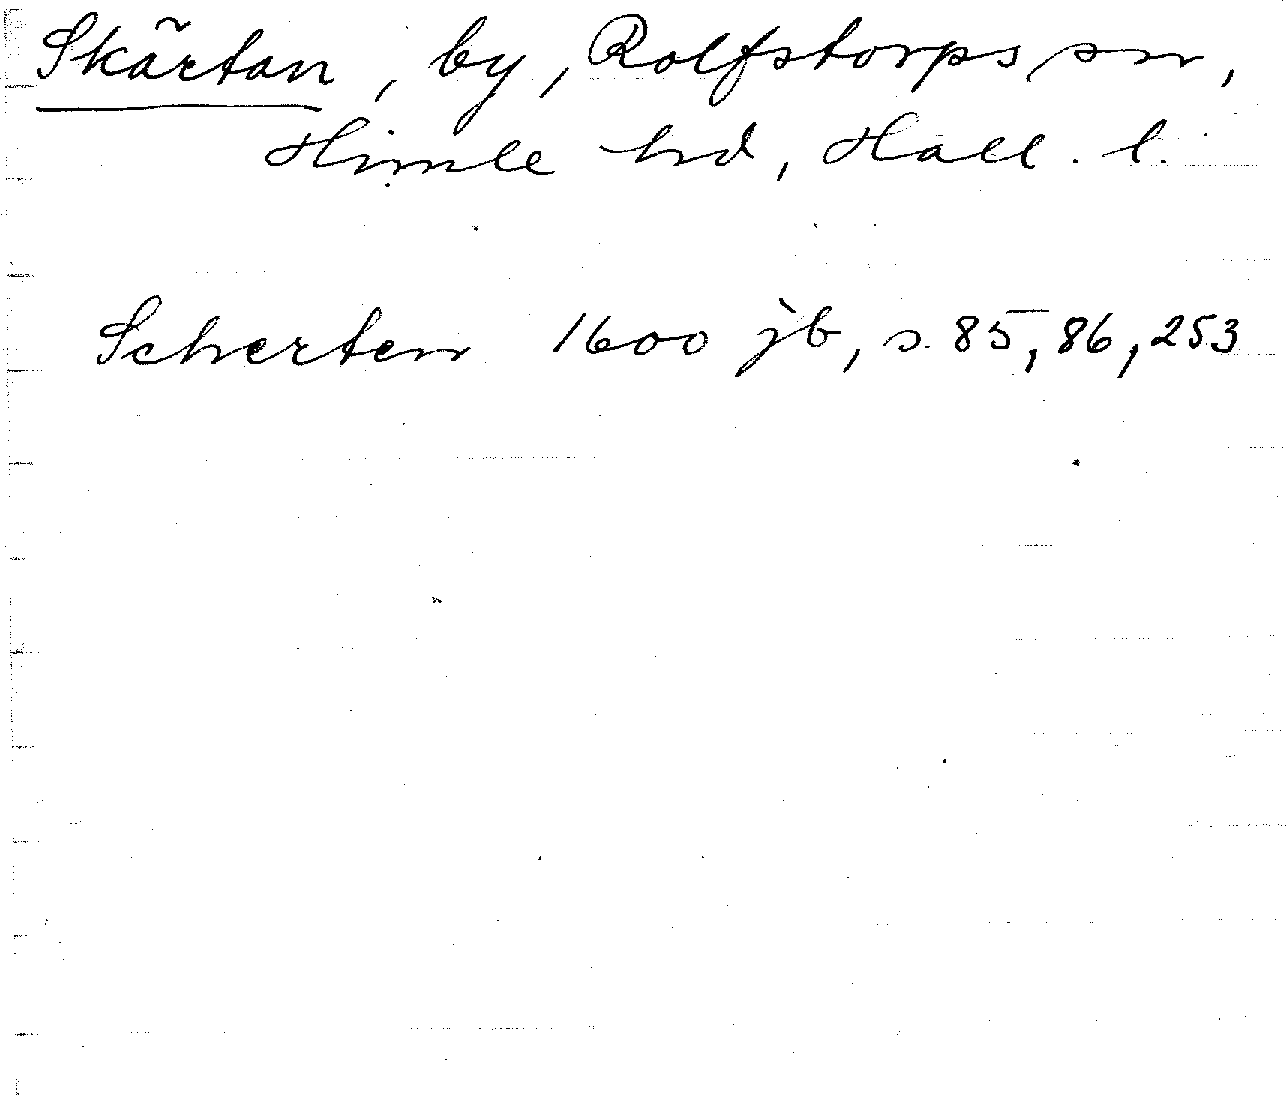 Skärtan, by, Rolfstorps sn,
Himle hd, Hall. l.
Scherten 1600 jb, s. 85, 86, 253